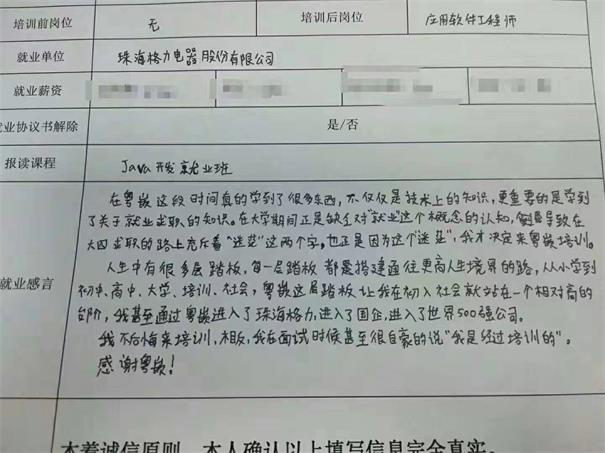 培训前岗位 无 培训后岗位 应用软件工程师
就业单位 珠海格力电器股份有限公司
就业薪资
业协议书解除 是/否
报读课程 Java开发就业班
就业感言
在粤嵌这段时间真的学到了很多东西，不仅仅是技术上的知识，更重要的是学到
了关于就业求职的知识。在大学期间正是缺乏对"就业"这个概念的认知，倒导致在
大四求职的路上充斥着"迷茫"这两个字。也正是因为这个"迷茫"，我才决定来粤嵌培训。
人生中有很多层踏板，每一层踏板都是搭建通往更高人生境界的路，从小学到
初中、高中、大学、培训、社会，粤嵌这层踏板让我在初入社会就站在一个相对高的
台阶，我甚至通过粤嵌进入了珠海格力，进入了国企，进入了世界500强公司。
我不后悔来培训，相反，我在面试时候甚至很自豪的说"我是经过培训的"。
感谢粤嵌！
本着诚信原则，本人确认以上填写信息完全真实。